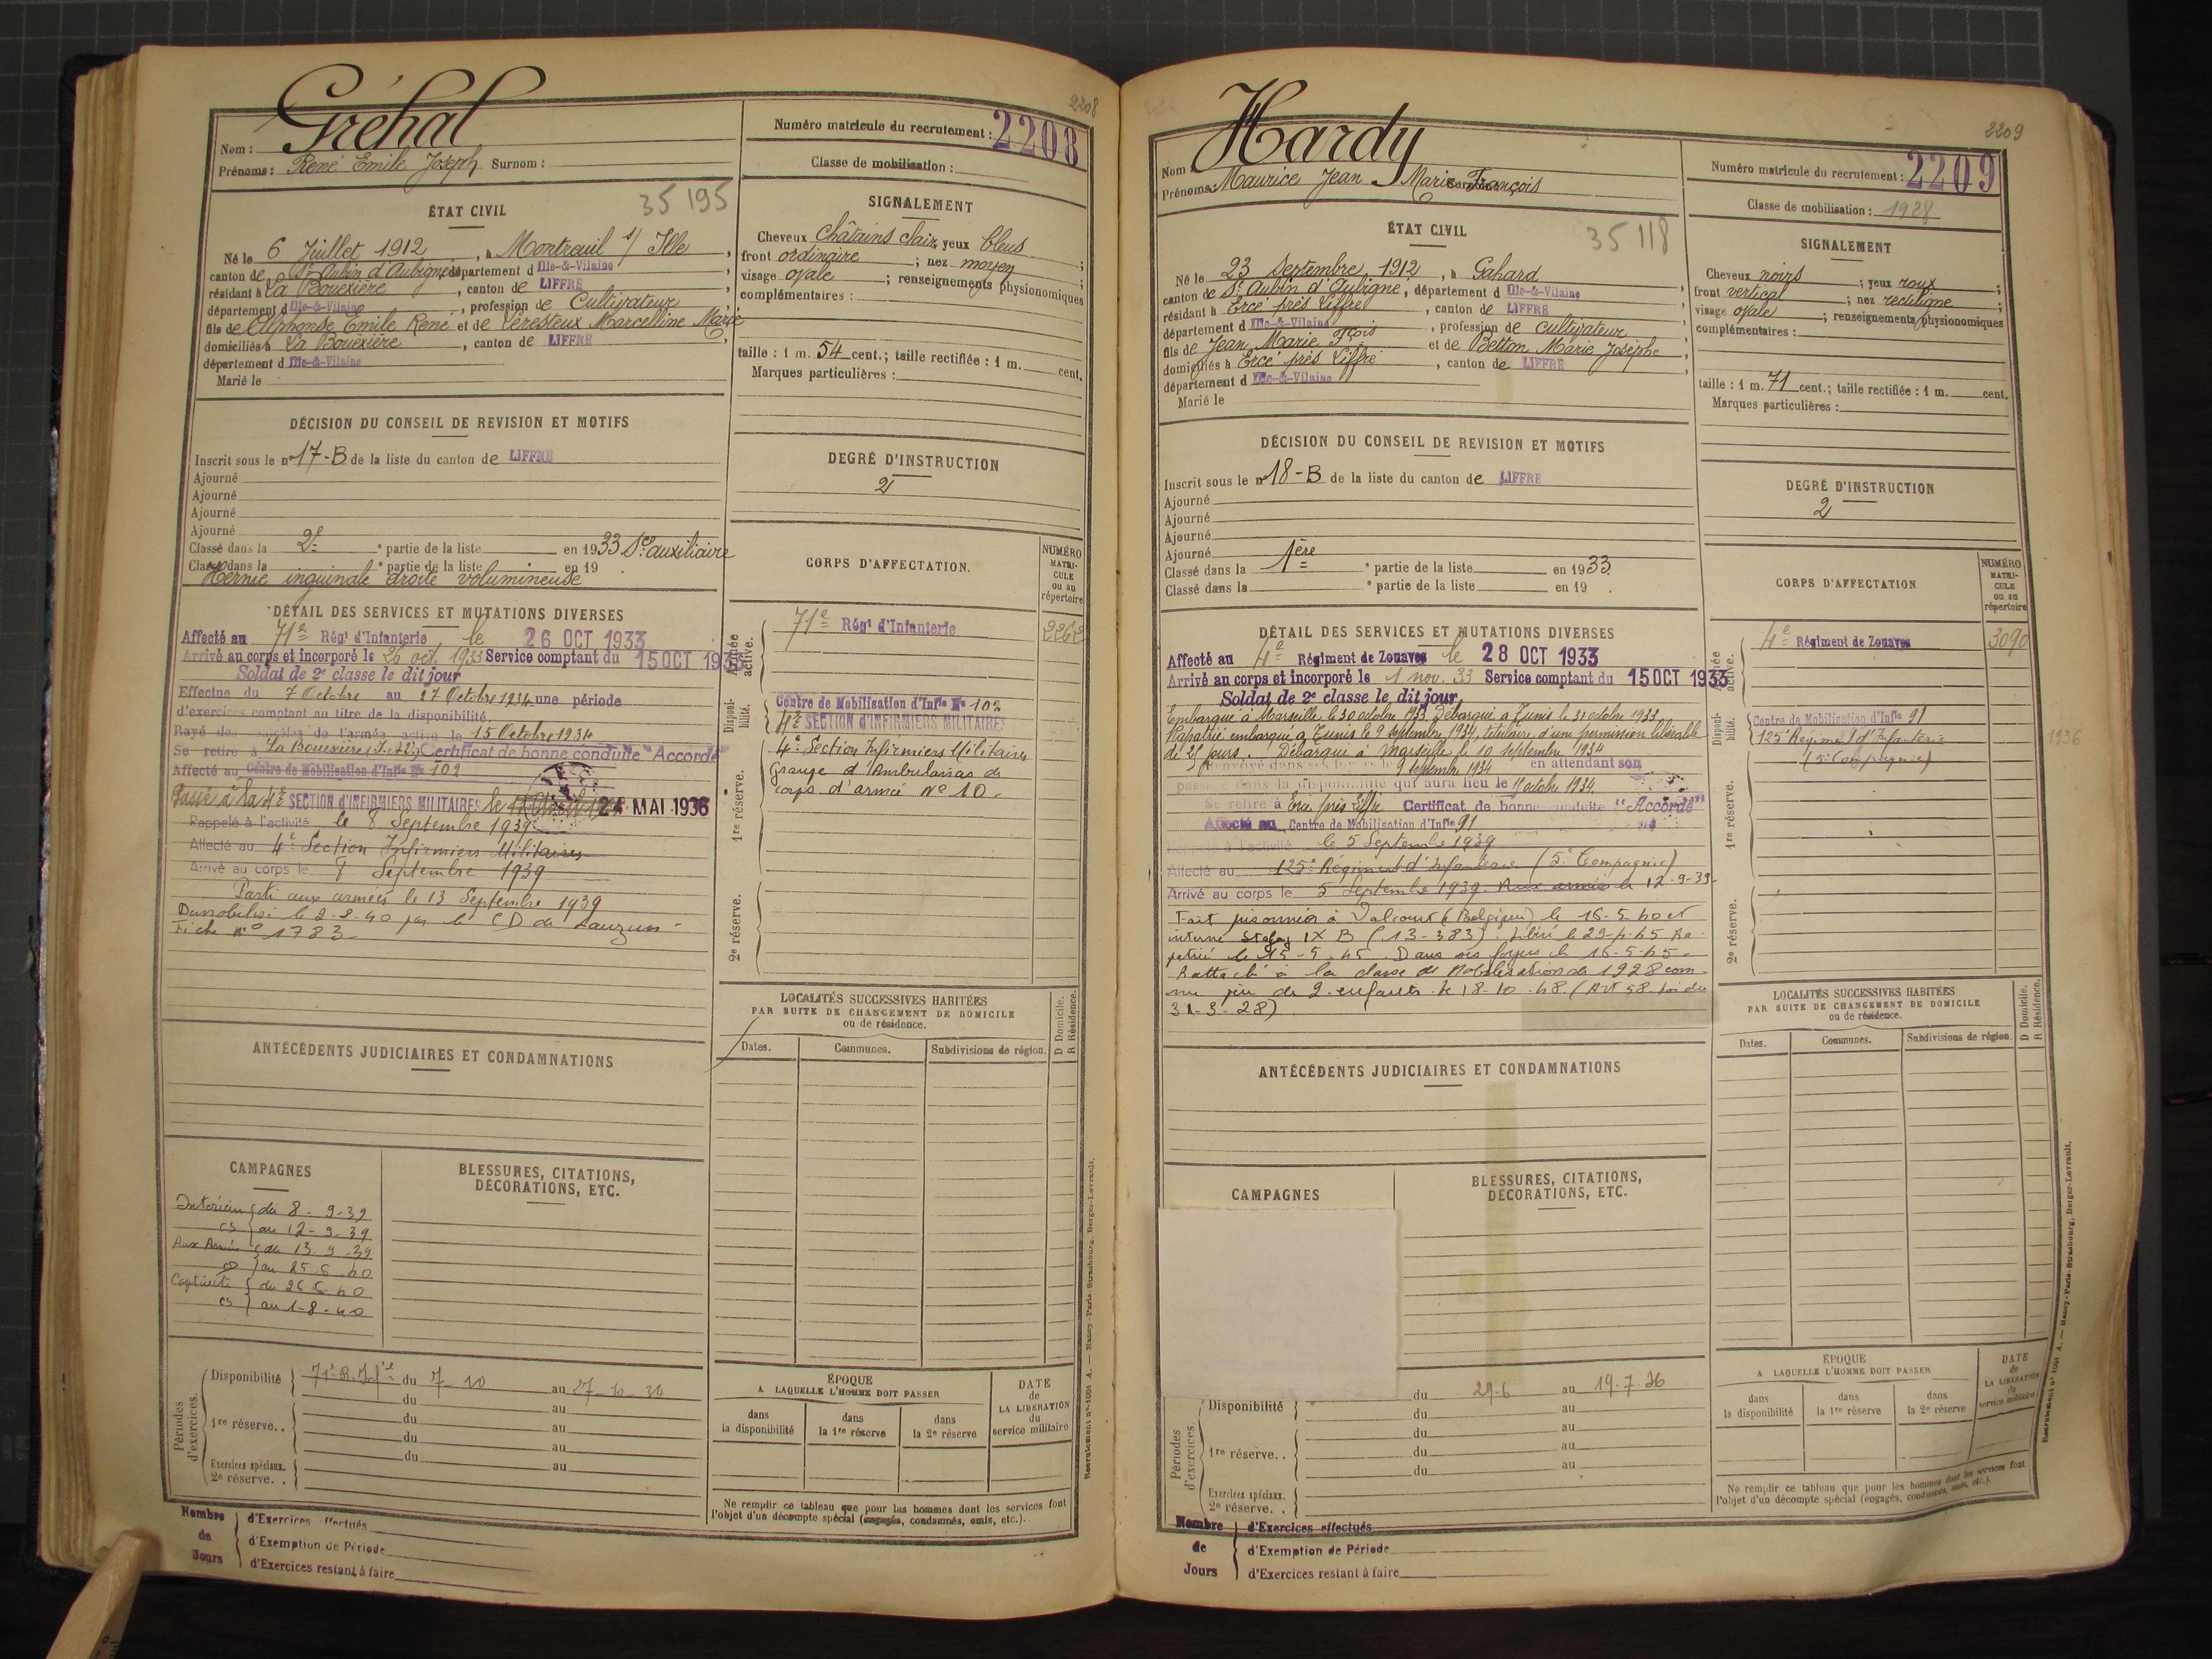 2208
Gréhal
Nom :
Prénoms : René Emile Joseph Surnom :
Numéro matricule du recrutement : 2208
Classe de mobilisation :
35 195
ÉTAT CIVIL
Né le 6 Juillet 1912, à Montreuil s/ Ille,
canton de St Aubin d'Aubigné, département d Ille-&-Vilaine,
résidant à La Bouexière, canton de LIFFRÉ,
département d Ille-&-Vilaine, profession de Cultivateur,
fils de Alphonse Emile René et de Leresteux Marcelline Marie
domiciliés à La Bouëxière, canton de LIFFRÉ,
département d Ille-&-Vilaine
Marié le
SIGNALEMENT
Cheveux châtains clair yeux bleus ;
front ordinaire ; nez moyen ;
visage ovale ; renseignements physionomiques
complémentaires :
taille : 1 m. 54 cent. ; taille rectifiée : 1 m. cent.
Marques particulières :
DÉCISION DU CONSEIL DE REVISION ET MOTIFS
Inscrit sous le n° 17-B de la liste du canton de LIFFRÉ
Ajourné
Ajourné
Ajourné
Ajourné
Classé dans la 2e ° partie de la liste en 1933 Sce auxiliaire
Classé dans la ° partie de la liste en 19
Hernie inguinale droite volumineuse
DEGRÉ D'INSTRUCTION
2
DÉTAIL DES SERVICES ET MUTATIONS DIVERSES
Affecté au 71e Régt d'Infanterie le 26 OCT 1933
Arrivé au corps et incorporé le 26 oct. 1933 Service comptant du 15 OCT 1933
Soldat de 2e classe le dit jour
Effectue du 7 Octobre au 27 Octobre 1934 une période
d'exercices comptant au titre de la disponibilité.
Rayé des contrôles de l'armée active le 15 Octobre 1934
Se retire à La Bouexière (I.&V.) Certificat de bonne conduite "Accordé"
Affecté au Centre de Mobilisation d'Infie N° 102
Passé à la 4e SECTION d'INFIRMIERS MILITAIRES le 24 MAI 1936
Rappelé à l'activité le 8 Septembre 1939
Affecté au 4e Section Infirmiers Militaires
Arrivé au corps le 8 Septembre 1939
Parti aux armées le 13 Septembre 1939
Démobilisé le 2-8-40 par le CD de Lauzun
Fiche n° 1783
CORPS D'AFFECTATION.
NUMÉRO MATRICULE ou au répertoire
Armée active.
71e Régt d'Infanterie
2262
Disponibilité.
Centre de Mobilisation d'Infie N° 102
4e SECTION d'INFIRMIERS MILITAIRES
1re réserve.
4e Section Infirmiers Militaires
Groupe d'Ambulances de
corps d'armée N° 10.
2e réserve.
LOCALITÉS SUCCESSIVES HABITÉES
PAR SUITE DE CHANGEMENT DE DOMICILE
ou de résidence.
D Domicile.
R Résidence.
Dates. Communes. Subdivisions de région.
ANTÉCÉDENTS JUDICIAIRES ET CONDAMNATIONS
CAMPAGNES
Intérieur du 8-9-39
CS au 12-9-39
Aux Armées du 13-9-39
CD au 25-6-40
Captivité du 26-6-40
CS au 1-8-40
BLESSURES, CITATIONS,
DÉCORATIONS, ETC.
Périodes d'exercices.
Disponibilité 71e R. Infie du 7-10 au 27-10-34
du au
1re réserve.. du au
du au
du au
Exercices spéciaux.
2e réserve. .
ÉPOQUE
A LAQUELLE L'HOMME DOIT PASSER
dans la disponibilité
dans la 1re réserve
dans la 2e réserve
DATE de LA LIBÉRATION du service militaire
Ne remplir ce tableau que pour les hommes dont les services font
l'objet d'un décompte spécial (engagés, condamnés, omis, etc.).
Nombre de Jours
d'Exercices effectués
d'Exemption de Période
d'Exercices restant à faire
Recrutement n° 1001 A. — Nancy-Paris-Strasbourg, Berger-Levrault.
2209
Hardy
Nom :
Prénoms : Maurice Jean Marie François
Numéro matricule du recrutement : 2209
Classe de mobilisation : 1928
35 118
ÉTAT CIVIL
Né le 23 Septembre 1912, à Gahard
canton de St Aubin d'Aubigné, département d Ille-&-Vilaine
résidant à Ercé près Liffré, canton de LIFFRÉ
département d Ille-&-Vilaine, profession de cultivateur,
fils de Jean Marie Fçois et de Betton Marie Josèphe,
domiciliés à Ercé près Liffré, canton de LIFFRÉ
département d Ille-&-Vilaine
Marié le
SIGNALEMENT
Cheveux noirs ; yeux roux ;
front vertical ; nez rectiligne ;
visage ovale ; renseignements physionomiques
complémentaires :
taille : 1 m. 71 cent. ; taille rectifiée : 1 m. cent.
Marques particulières :
DÉCISION DU CONSEIL DE REVISION ET MOTIFS
Inscrit sous le n° 18-B de la liste du canton de LIFFRÉ
Ajourné
Ajourné
Ajourné
Ajourné
Classé dans la 1ère ° partie de la liste en 1933
Classé dans la ° partie de la liste en 19 .
DEGRÉ D'INSTRUCTION
2
DÉTAIL DES SERVICES ET MUTATIONS DIVERSES
Affecté au 4e Régiment de Zouaves le 28 OCT 1933
Arrivé au corps et incorporé le 1 nov. 33 Service comptant du 15 OCT 1933
Soldat de 2e classe le dit jour
Embarqué à Marseille le 30 octobre 1933 Débarqué à Tunis le 31 octobre 1933
Rapatrié embarqué à Tunis le 9 septembre 1934, titulaire d'une permission libérable
de 25 jours. Débarqué à Marseille le 10 septembre 1934
Renvoyé dans ses foyers le 9 septembre 1934 en attendant son
passage dans la disponibilité qui aura lieu le 15 octobre 1934
Se retire à Ercé près Liffré Certificat de bonne conduite "Accordé"
Affecté au Centre de Mobilisation d'Infie 91
Rappelé à l'activité le 5 Septembre 1939
Affecté au 125e Régiment d'Infanterie (5e Compagnie)
Arrivé au corps le 5 Septembre 1939. Aux armées le 12-9-39
Fait prisonnier à Valcourt (Belgique) le 16-5-40 et
interné Stalag IX B (13-383). Libéré le 29-4-45 Ra-
patrié le 15-5-45 Dans ses foyers le 16-5-45
Rattaché à la classe de Mobilisation de 1928 com-
me père de 2 enfants le 18-10-48 (Art 58 loi du
31-3-28)
CORPS D'AFFECTATION
NUMÉRO MATRICULE ou au répertoire
Armée active.
4e Régiment de Zouaves
3090
Disponibilité.
Centre de Mobilisation d'Infie 91
125e Régiment d'Infanterie
(5e Compagnie)
1936
1re réserve.
2e réserve.
LOCALITÉS SUCCESSIVES HABITÉES
PAR SUITE DE CHANGEMENT DE DOMICILE
ou de résidence.
D Domicile.
R Résidence.
Dates. Communes. Subdivisions de région.
ANTÉCÉDENTS JUDICIAIRES ET CONDAMNATIONS
CAMPAGNES
BLESSURES, CITATIONS,
DÉCORATIONS, ETC.
Périodes d'exercices.
Disponibilité du 29-6 au 19.7.36
du au
du au
1re réserve.. du au
du au
Exercices spéciaux.
2e réserve. .
ÉPOQUE
A LAQUELLE L'HOMME DOIT PASSER
dans la disponibilité
dans la 1re réserve
dans la 2e réserve
DATE de LA LIBÉRATION du service militaire
Ne remplir ce tableau que pour les hommes dont les services font
l'objet d'un décompte spécial (engagés, condamnés, omis, etc.).
Nombre de Jours
d'Exercices effectués
d'Exemption de Période
d'Exercices restant à faire
Recrutement n° 1001 A. — Nancy-Paris-Strasbourg, Berger-Levrault.